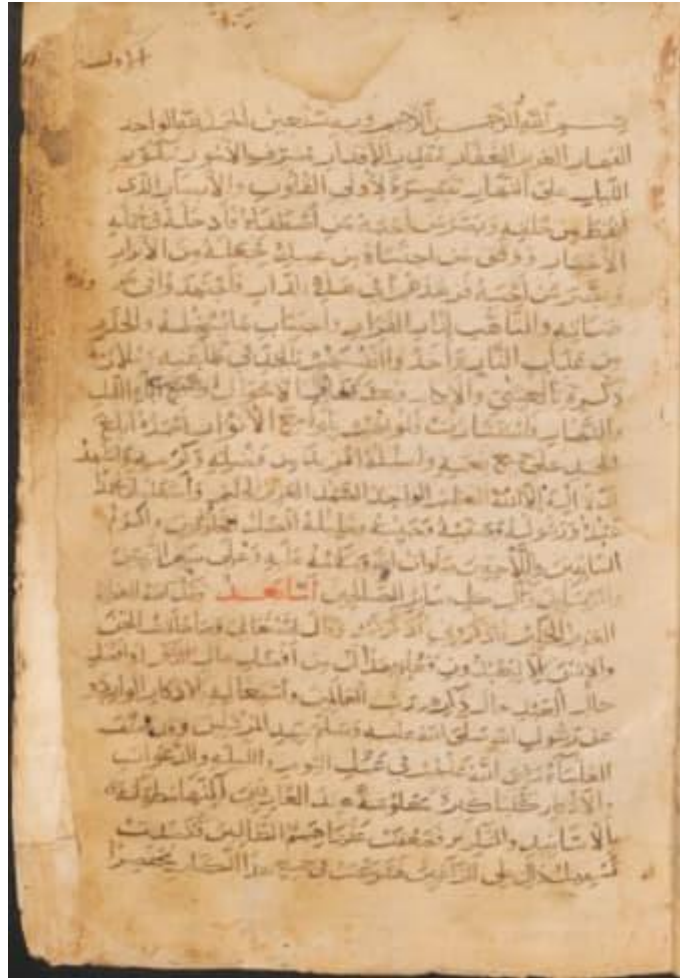 بسم الله الرحمن الرحيم وبه نستعين الحمد لله الواحد
القهار العزيز الغفار مقدر الأقدار مصرف الأمور مكور
الليل على النهار تبصرة لأولي القلوب والأبصار الذي
أيقظ من خلقه من اصطفاه فأدخله في جملة
الأخيار ووفق من اجتباه من عبيده فجعله من الأبرار
وبصر من أحبه فزهدهم في هذه الدار فاجتهدوا في
مرضاته والتأهب لدار القرار واجتناب ما يسخطه والحذر
من عذاب النار وأخذوا أنفسهم بالجد في طاعته وملازمة
ذكره بالعشي والإبكار وعند تغاير الأحوال وجميع آناء الليل
والنهار فاستنارت قلوبهم بلوامع الأنوار أحمده أبلغ
الحمد على جميع نعمه وأسئله المزيد من فضله وكرمه وأشهد
أن لا إله إلا الله العظيم الواحد الصمد العزيز الحكيم وأشهد أن محمدا
عبده ورسوله وصفيه وحبيبه وخليله أفضل المخلوقين وأكرم
السابقين واللاحقين صلوات الله وسلامه عليه وعلى سائر النبيين
والمرسلين وآل كل وسائر الصالحين أما بعد فقد قال الله العظيم
العزيز الحكيم فاذكروني أذكركم وقال تعالى وما خلقت الجن
والإنس إلا ليعبدون فعلم بهذا أن من أفضل حال أو أفضل
حال العبد حال ذكره رب العالمين واشتغاله بالأذكار الواردة
عن رسول الله صلى الله عليه وسلم سيد المرسلين وقد صنف
العلماء رضي الله عنهم في عمل اليوم والليلة والدعوات
والأذكار كتبا كثيرة معلومة عند العارفين لكنها مطولة
بالأسانيد والتكرير فضعفت عنها همم الطالبين فقصدت
تسهيل ذلك على الراغبين فشرعت في جمع هذا الكتاب مختصرا